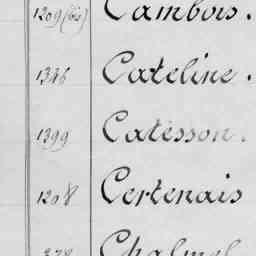 1209 (bis) Cambois.
1346 Cateline.
1399 Catesson.
1208 Certenais
378 Chalmel